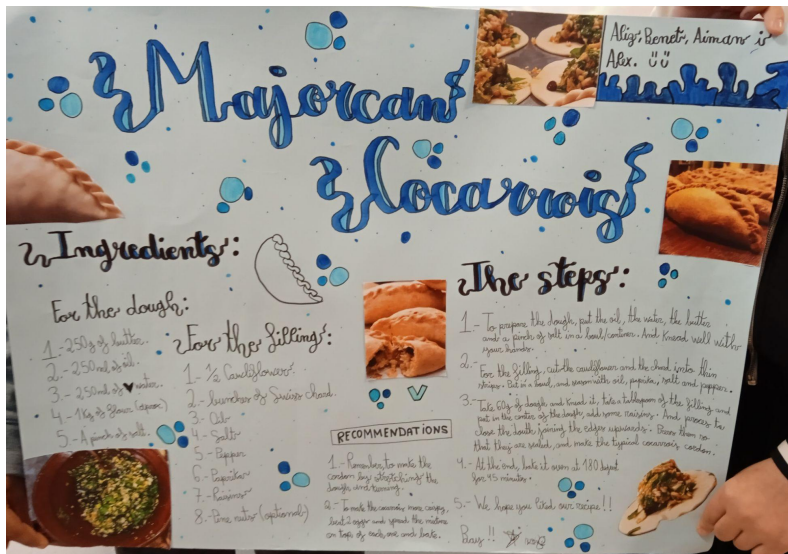 Majorcan
Cocarrois
Aliz, Benet, Aiman i
Alex.
Ingredients:
For the dough:
1.- 250g of butter.
2.- 250ml of oil.
3.- 250ml of water.
4.- 1Kg of flour (approx)
5.- A pinch of salt.
For the filling:
1.- 1/2 Cauliflower.
2.- bunches of Swiss chard.
3.- Oil
4.- Salt
5.- Pepper
6.- Paprika
7.- Raisins
8.- Pine nuts (optional)
RECOMMENDATIONS
1.- Remember to make the
cordon by stretching the
dough and turning.
2.- To make the cocarrois more crispy,
beat 2 eggs and spread the mixture
on top of each one and bake.
The steps:
1.- To prepare the dough, put the oil, the water, the butter
and a pinch of salt in a bowl/container. And Knead well with
your hands.
2.- For the filling, cut the cauliflower and the chard into thin
strips. Put in a bowl, and season with oil, paprika, salt and pepper.
3.- Take 60g of dough and Knead it, take a tablespoon of the filling and
put in the center of the dough, add some raisins. And process to
close the dough joining the edges upwards. Press them so
that they are sealed, and make the typical cocarrois cordon.
4.- At the end, bake it oven at 180
for 45 minutes.
5.- We hope you liked our recipe!!